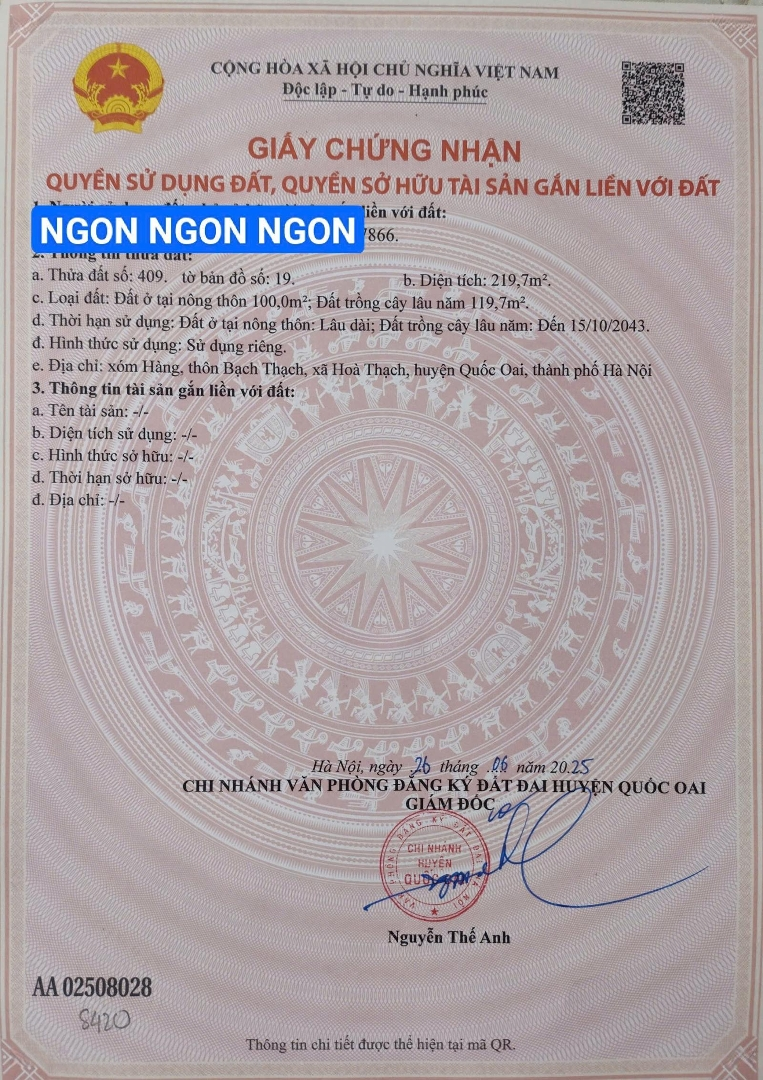 CỘNG HÒA XÃ HỘI CHỦ NGHĨA VIỆT NAM
Độc lập - Tự do - Hạnh phúc
GIẤY CHỨNG NHẬN
QUYỀN SỬ DỤNG ĐẤT, QUYỀN SỞ HỮU TÀI SẢN GẮN LIỀN VỚI ĐẤT
liền với đất:
NGON NGON NGON
7866.
2. Thông tin thửa đất:
a. Thửa đất số: 409. tờ bản đồ số: 19. b. Diện tích: 219,7m².
c. Loại đất: Đất ở tại nông thôn 100,0m²; Đất trồng cây lâu năm 119,7m².
d. Thời hạn sử dụng: Đất ở tại nông thôn: Lâu dài; Đất trồng cây lâu năm: Đến 15/10/2043.
đ. Hình thức sử dụng: Sử dụng riêng.
e. Địa chỉ: xóm Hàng, thôn Bạch Thạch, xã Hoà Thạch, huyện Quốc Oai, thành phố Hà Nội
3. Thông tin tài sản gắn liền với đất:
a. Tên tài sản: -/-
b. Diện tích sử dụng: -/-
c. Hình thức sở hữu: -/-
d. Thời hạn sở hữu: -/-
đ. Địa chỉ: -/-
Hà Nội, ngày 26 tháng .06 năm 20.25
CHI NHÁNH VĂN PHÒNG ĐĂNG KÝ ĐẤT ĐAI HUYỆN QUỐC OAI
GIÁM ĐỐC
VĂN PHÒNG ĐĂNG KÝ ĐẤT ĐAI HÀ NỘI
CHI NHÁNH
HUYỆN
Nguyễn Thế Anh
AA 02508028
8420
Thông tin chi tiết được thể hiện tại mã QR.